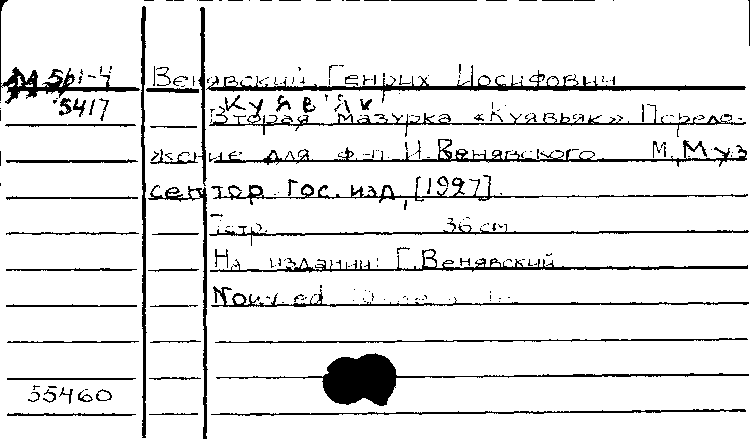 561-4 Венявский, Генрих Иосифович
5417 Куявяк
Вторая мазурка «Куявьяк». Перело-
жение для ф-п. И. Венявского. М., Муз
сектор Гос. изд, [1927].
7стр. 36 см.
На издании: Г. Венявский
Nouv. ed.
55460